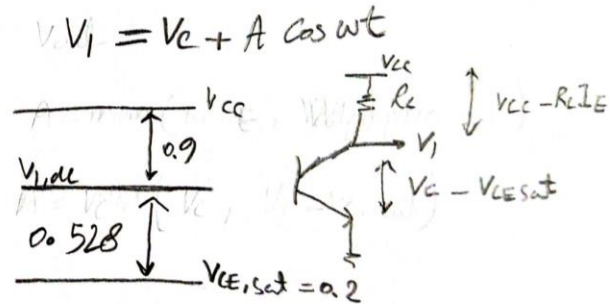 V₁ = Vc + A Cos ωt
Vcc
0.9
V₁,dc
0.528
VCE,sat = 0.2
Vcc
Rc
V₁
Vcc - RcIE
Vc - VCEsat